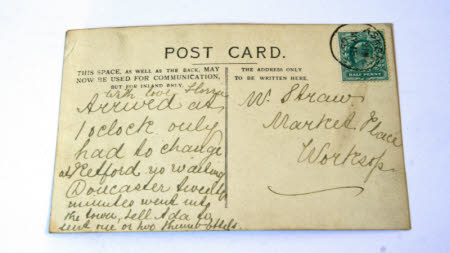 POST CARD.
THIS SPACE, AS WELL AS THE BACK, MAY
NOW BE USED FOR COMMUNICATION,
BUT FOR INLAND ONLY.
THE ADDRESS ONLY
TO BE WRITTEN HERE.
HALF PENNY
With love
Arrived at
1 oclock only
had to change
at Retford no waiting
Doncaster twenty
minutes went into
the town, tell Ada to
send me one or two
W. Straw
Market Place
Worksop